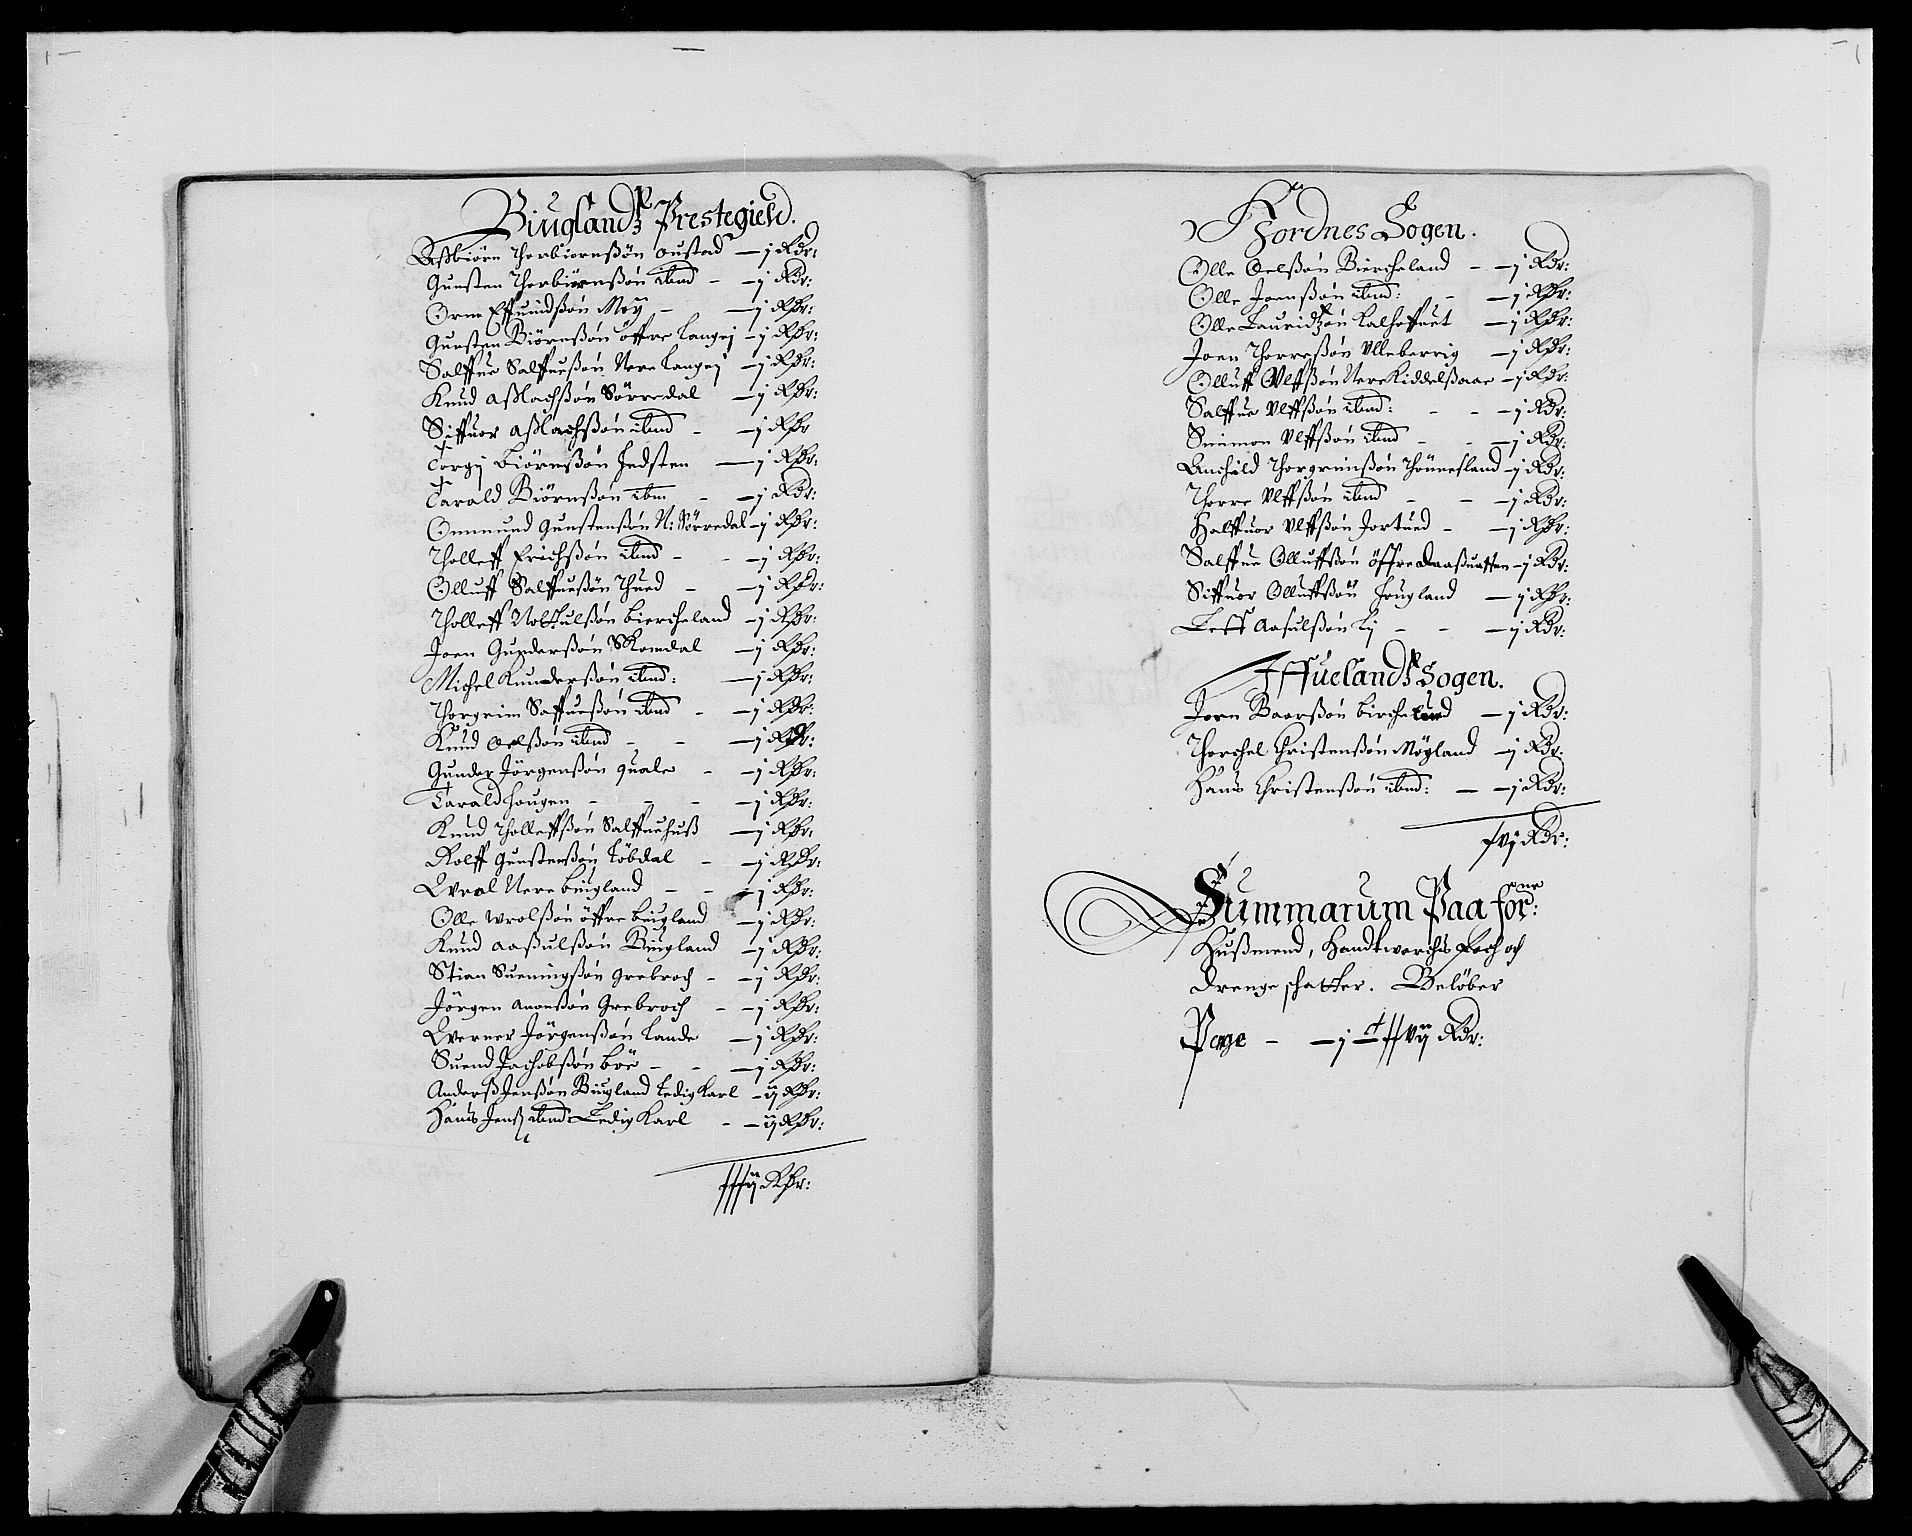 Biuglandz Prestegield.
Assbiörn Thorbiörnßön Oustad — j Rdr:
Gunsten Thorbiörnßön ibmd — j Rdr:
Orm Effuindßön Moy — j Rdr:
Gunsten Biörnßön öffre Langej — j Rdr:
Salffue Salffueßön Nere Langej — j Rdr:
Knud Aßlachßön Sörredal — j Rdr:
Siffuor Aßlachßön ibmd — j Rdr
Torgij Biörnßön Hedsten — j Rdr:
Tarald Biörnßön ibm — j Rdr:
Ommund Gunstenßön N: Sörredal — j Rdr:
Tholleff Erichßön ibmd — j Rdr:
Olluff Salffueßön Thued — j Rdr:
Tholleff Biercheland — j Rdr:
Joen Gunderßön Romdal — j Rdr:
Michel Knuderßön ibmd: — j Rdr:
Thorgrim Saffueßön ibmd — j Rdr:
Knud Oelßön ibmd — j Rdr:
Gunder Jörgenßön Quale — j Rdr:
Tarald Hougen — j Rdr:
Knud Tholleffßön Salffuehuß — j Rdr:
Rolff Gunstenßön Töbdal — j Rdr:
Wrol Nere Biugland — j Rdr:
Olle Wrolßön öffre Biugland — j Rdr:
Knud Aaßulßön Biugland — j Rdr:
Stian Sueningßön Grebroch — j Rdr:
Jörgen Anonßön Grebroch — j Rdr:
Werner Jörgenßön Lande — j Rdr:
Suend Jachobßön Böe — j Rdr:
Anderß Jenßön Biugland Ledig Karl — ij Rdr:
Hans Jenß ibmd: Ledig Karl — ij Rdr:
xxxij Rdr:
Hordnes Sogen.
Olle Oelßön Biercheland — j Rdr:
Olle Joenßön ibmd: — j Rdr:
Olle Lauridzön Kalhoffuet — j Rdr:
Joen Thorreßön Ulleberrig — j Rdr:
Olluff Ulffßön Nere Kiddelßaae — j Rdr:
Salffue Ulffßön ibmd: — j Rdr:
Simon Ulffßön ibmd — j Rdr:
Anchild Thorgrimßön Thönneßland — j Rdr:
Thorre Ulffßön ibmd — j Rdr:
Halffuor Ulffßön Jortued — j Rdr:
Salffue Olluffßön öffre — j Rdr:
Siffuor Olluffßön Hougland — j Rdr:
Leff Aasulßön Lj — j Rdr:
Iffuelandz Sogen.
Joen Baarßön Bircheland — j Rdr:
Thorchel Christenßön Möyland — j Rdr:
Hans Christenßön ibmd: — j Rdr:
xvj Rdr:
Summarum Paa for:ne
Hußmend, Handtwerchs Folch och
Drenge schatter. Belöber
Penge — j C xxvij Rdr: